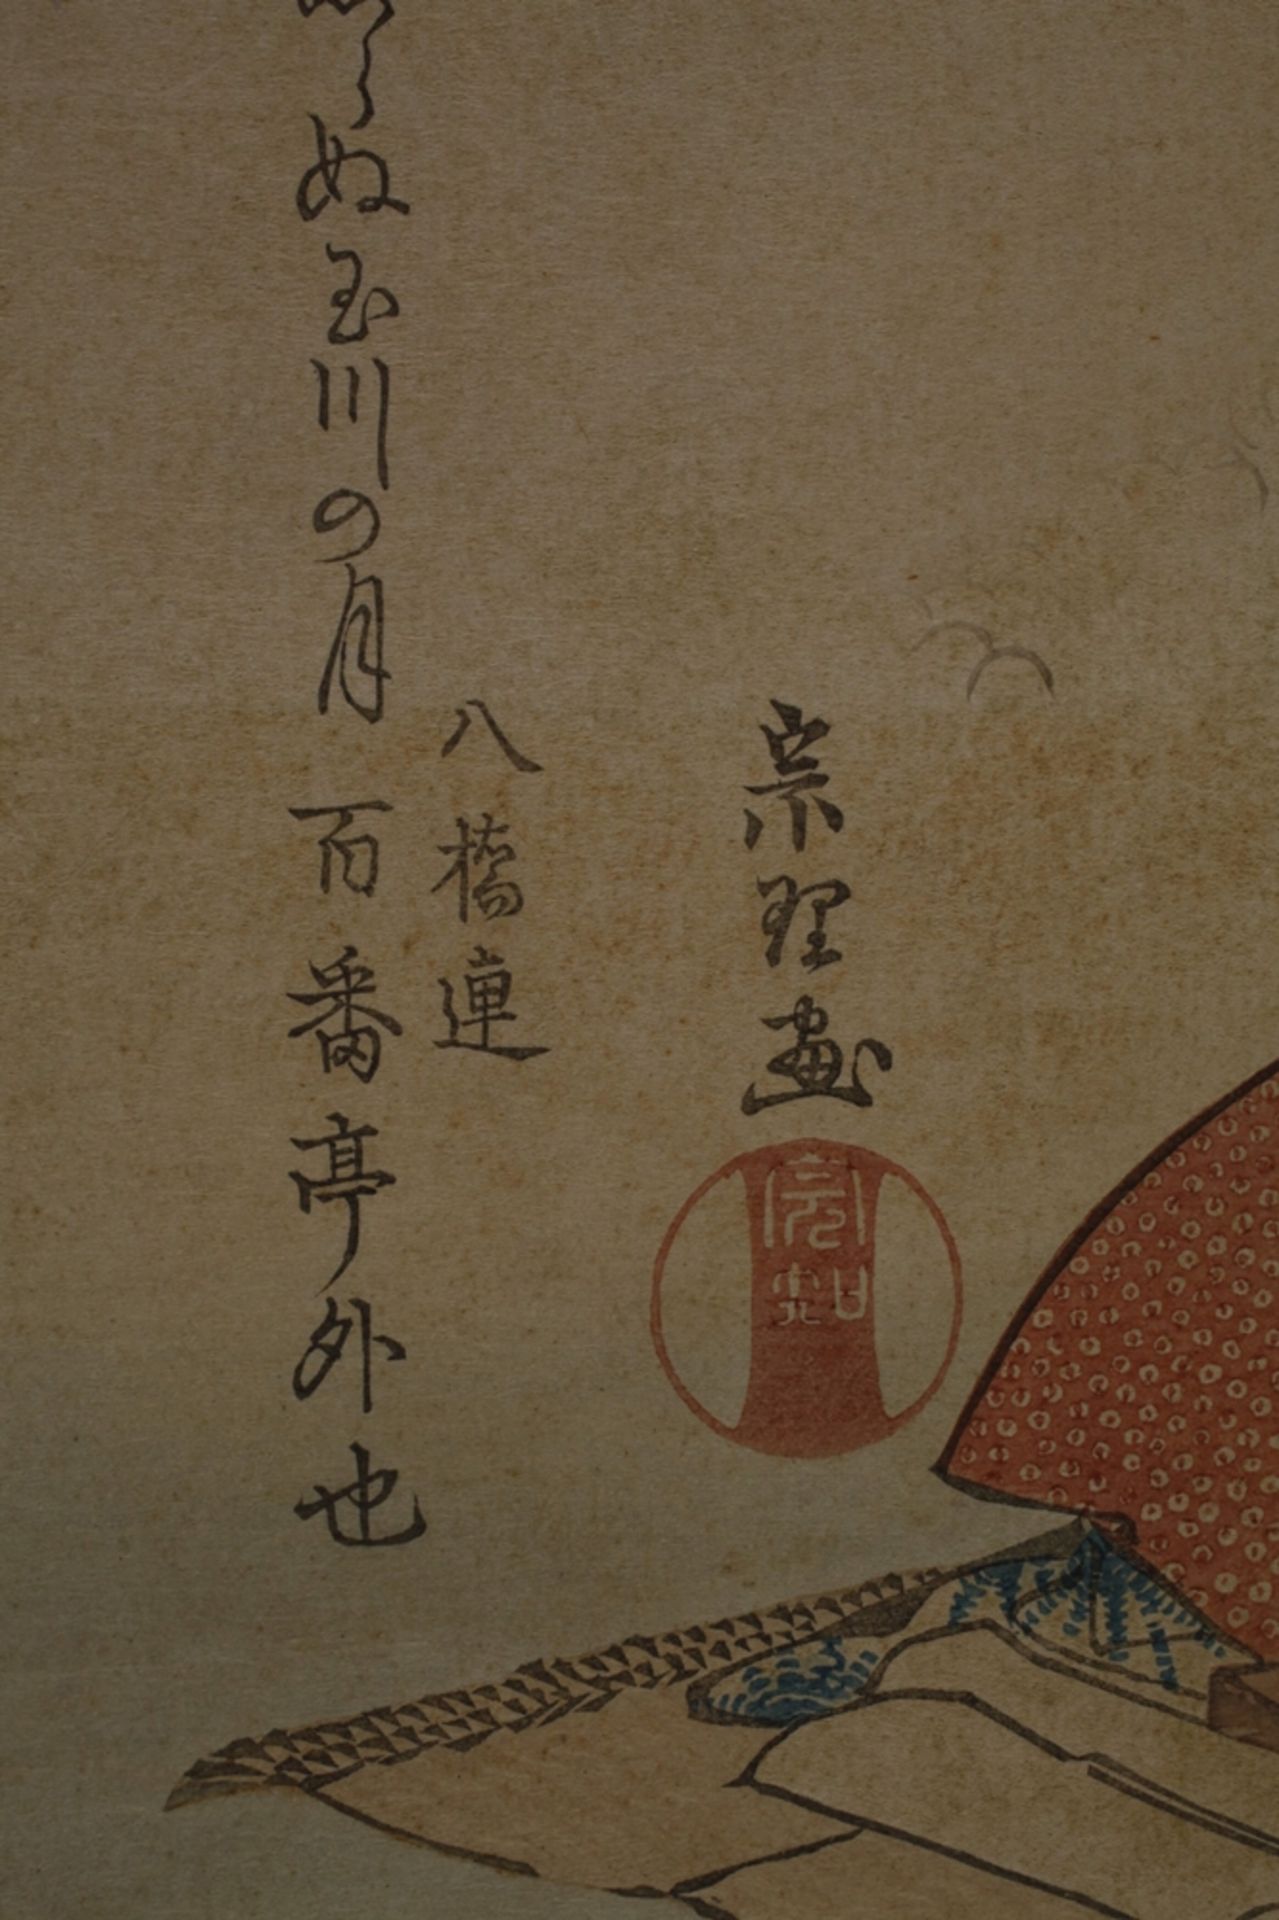 宗理画
八橋連
らぬ玉川の月 百番亭外也